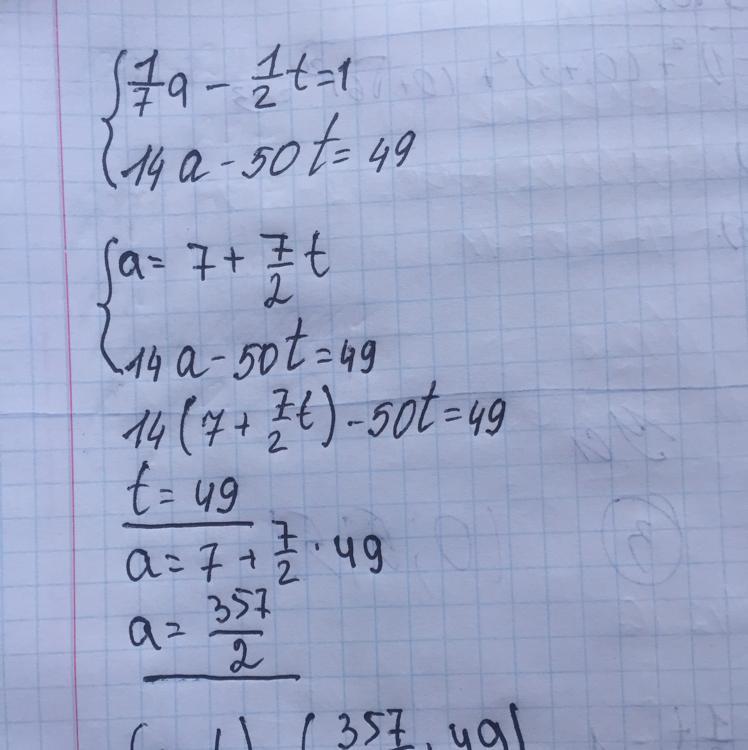 { 1/7 a - 1/2 t = 1
14a - 50t = 49
{ a = 7 + 7/2 t
14a - 50t = 49
14(7 + 7/2 t) - 50t = 49
t = 49
a = 7 + 7/2 · 49
a = 357/2
357 49